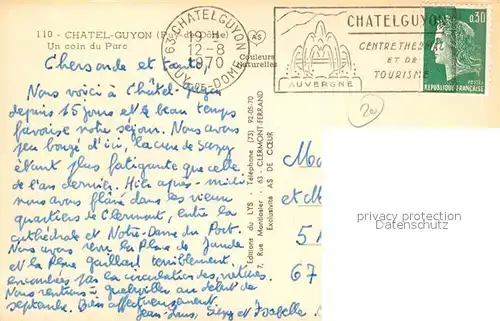 110 - CHATEL-GUYON (P.-de-Dôme)
Un coin du Parc
63 CHATELGUYON
19 H
12-8
1970
PUY-DE-DOME
AS
Couleurs
Naturelles
AUVERGNE
CHATELGUYON
CENTRE THERMAL
ET DE
TOURISME
0,30
POSTES
REPUBLIQUE FRANÇAISE
20
Chers oncle et tante,
Nous voici à Châtel-Guyon
depuis 15 jours et le beau temps
favorise notre séjour. Nous avons
peu bougé d'ici, la cure de
étant plus fatigante que celle
de l'an dernier. après-midi
nous avons flâné dans les vieux
quartiers de Clermont, entre la
cathédrale et Notre-Dame du Port.
Nous avons revu la Place de Jaude
et la Place Gaillard terriblement
encombrées par la circulation des voitures.
Nous rentrons à au début de
septembre. Bien affectueusement
Jean-Louis, et Isabelle
Editions du LYS - Téléphone (73) 92-05-70
7, Rue Montlosier - 63 - CLERMONT-FERRAND
Exclusivité AS DE CŒUR
M
et M
5
67
privacy protection
Datenschutz